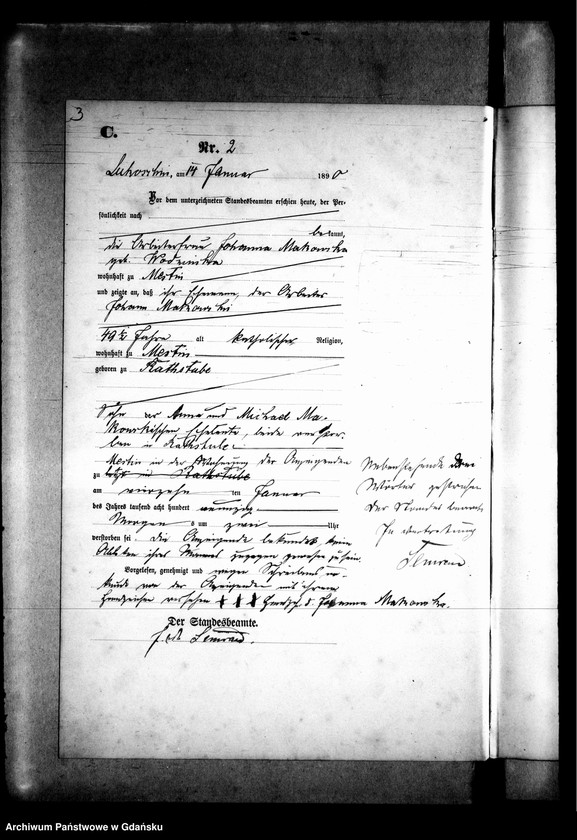 3
C.
Nr. 2
am 14 Januar 1890
Vor dem unterzeichneten Standesbeamten erschien heute, der Per-
sönlichkeit nach
be kannt,
die Arbeiterfrau Johanna Makowska
geb.
wohnhaft zu Mestin
und zeigte an, daß ihr Ehemann, der Arbeiter
Johann Makowski
49½ Jahre alt katholischer Religion,
wohnhaft zu Mestin
geboren zu Rathstube
Sohn der Anna und Michael Ma-
kowskischen Eheleute, beide verstor-
ben in Rathstube
Mestin in der Wohnung der Anzeigenden
zu
am vierzehn ten Januar
des Jahres tausend acht hundert neunzig
Morgens um zwei Uhr
verstorben sei. Die Anzeigende bekundet beim
Ableben ihres Mannes zugegen gewesen zu sein.
Vorgelesen, genehmigt und wegen Schreibens un-
kunde von der Anzeigenden mit ihrem
Handzeichen versehen +++ Handz. d. Johanna Makowska.
Der Standesbeamte.
Nebenstehende drei
Wörter gestrichen
Der Standesbeamte
In Vertretung
Archiwum Państwowe w Gdańsku